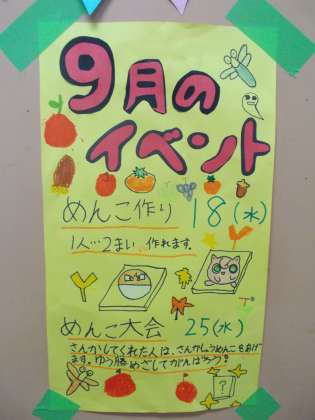 9月の
イベント
めんこ作り 18(水)
1人…2まい、作れます。
めんこ大会 25(水)
さんかしてくれた人は、さんかしょうめんこをあげ
ます。ゆう勝めざしてがんばろう!
?